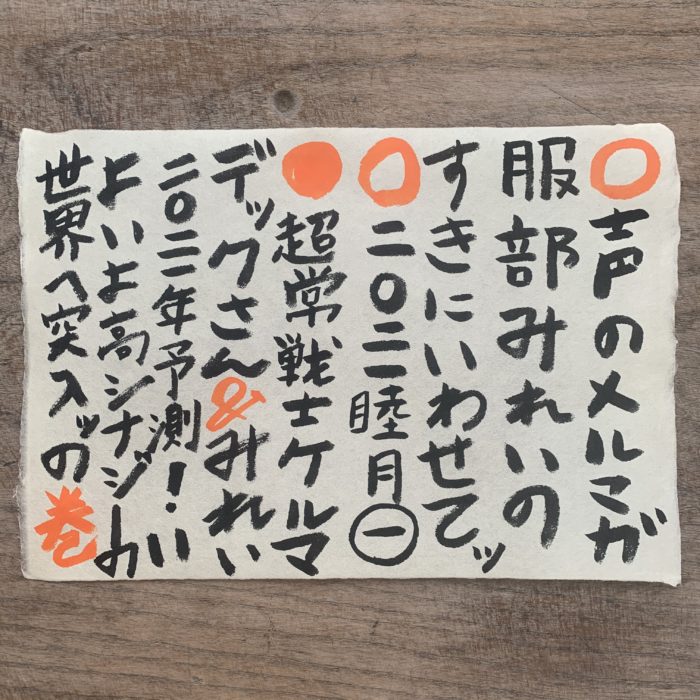 ○声のメルマガ
服部みれいの
すきにいわせてッ
○二〇二二睦月㊀
●超常戦士ケルマ
デックさん&みれい
二〇二二年予測!い
よいよ高シナジーの
世界へ突入ッの巻